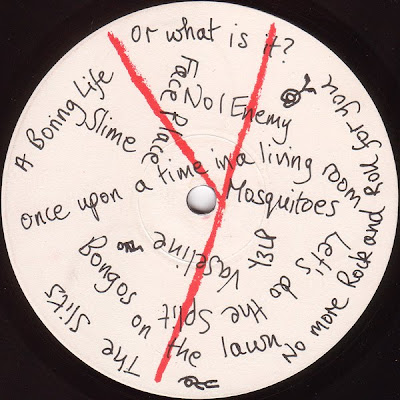 Or what is it?
A Boring Life
Slime
Face Place
No 1 Enemy
once upon a time in a living room
Mosquitoes
Vaseline
Let's do the split
Bongos on the lawn
The Slits
No more Rock and Roll for you